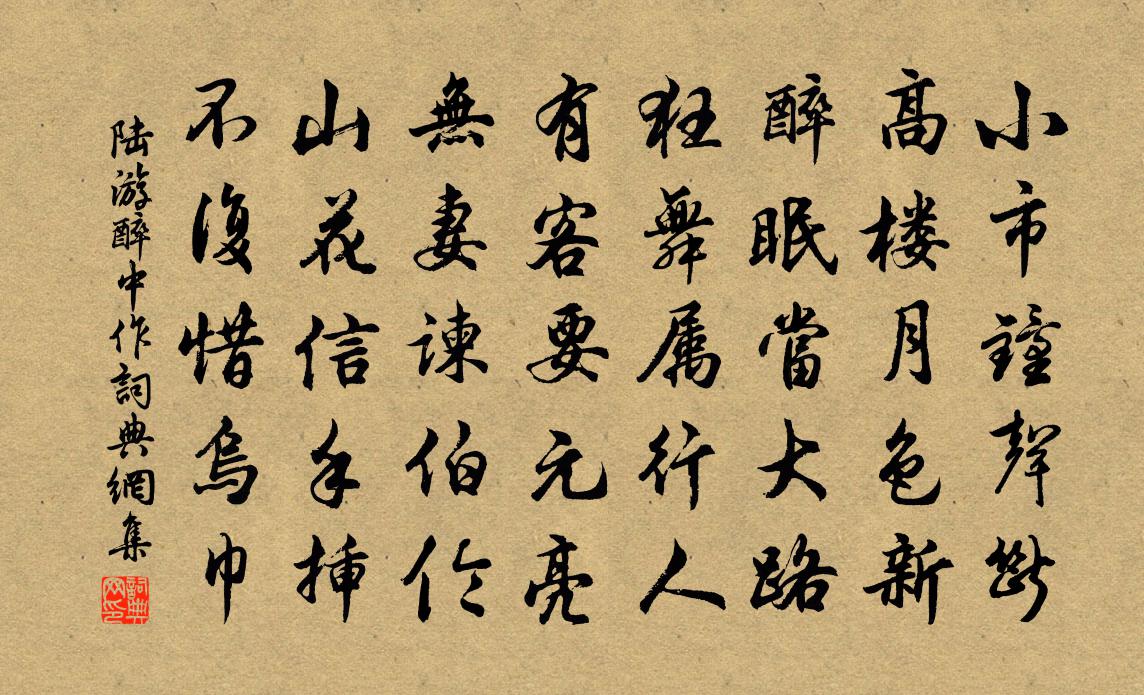 小市鐘聲斷
高楼月色新
醉眠當大路
狂舞属行人
有客要元亮
無妻諫伯伦
山花信手插
不復惜烏巾
陆游醉中作詞典網集
詞典网印